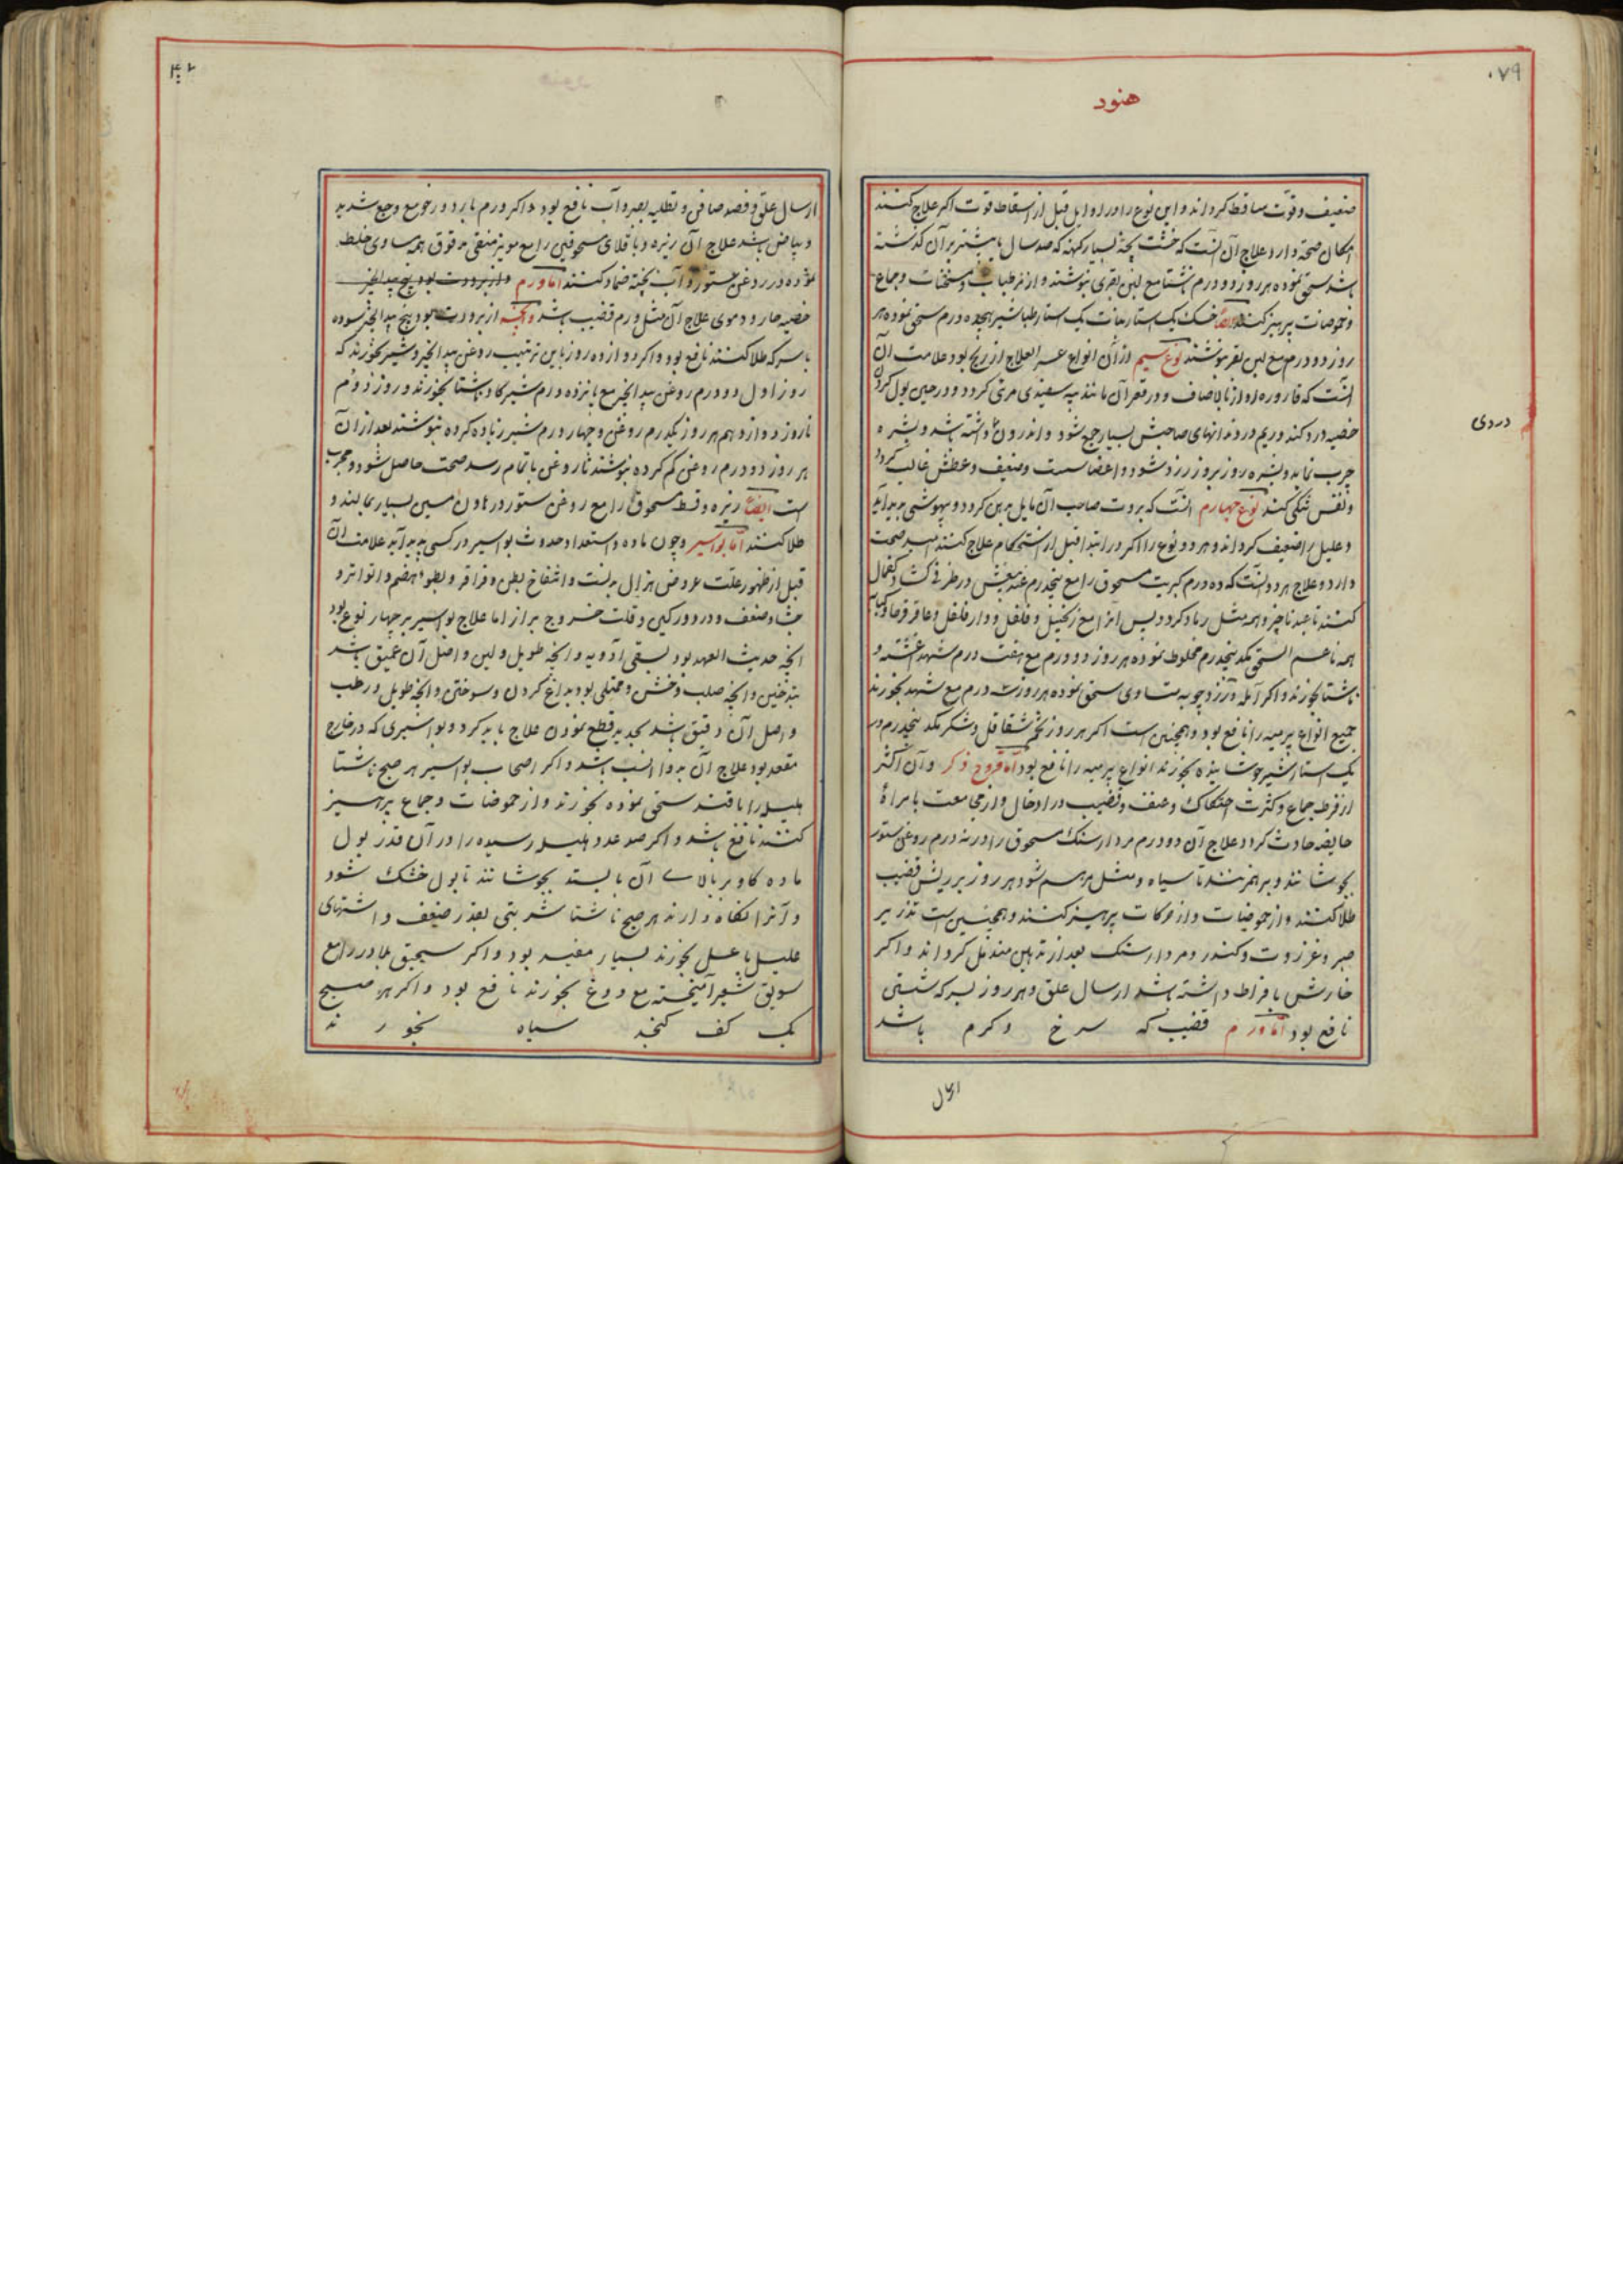 ۰۷۹
هنود
ضعیف و قوت ساقط کرداند و این نوع را در اوایل قبل از اسقاط قوت اکر علاج کنند
امکان صحة دارد علاج آن آنست که خشت پخته بسیار کهنه که صد سال یا بیشتر بر آن کذشته
باشد سحق نموده هر روز دو درم ناشتا مع لبن بقری بنوشند و از مرطبات و مسخنات و جماع
و حموضات پرهیز کنند ایضا خسک یک استار نبات یک استار طباشیر هجده درم سحق نموده هر
روز دو درم مع لبن بقر بنوشند نوع سیم از آن انواع عسر العلاج از ریح بود علامت آن
آنست که قاروره او از بالا صاف و در قعر آن مانند پیه سفیدی مرئی کردد و در حین بول کردن
خصیه درد کند و ریم در دندانهای صاحبش بسیار جمع شود و اندرون داشته باشد و بشره
چرب نماید و بشره روز بروز زرد شود و اعضا سست و ضعیف و عطش غالب کردد
و نفس تنکی کند نوع چهارم آنست که بروت صاحب آن مایل بدین کردد و بیهوشی پدید آید
و علیل را ضعیف کرداند و هر دو نوع را اکر در ابتدا قبل از استحکام علاج کنند امید صحت
دارد و علاج هر دو آنست که ده درم کبریت مسحوق را مع پنجدرم در ظرفی کشاده
کنند تا همه مثل رماد کردد پس انرا مع زنجبیل و فلفل و دارفلفل و عاقرقرحا
همه ناعم السحق یکد پنجدرم مخلوط نموده هر روز دو درم مع هفت درم شهد اغشته
ناشتا بخورند و اکر آمله و زردچوبه متساوی سحق نموده هر روز سه درم مع شهد بخورند
جمیع انواع پرمیه را نافع بود و همچنین است اکر هر روز تخم شقاقل و شکر یکد پنجدرم در
یک استار شیر جوشانیده بخورند انواع پرمیه را نافع بود اما قروح ذکر و آن اکثر
از فرط جماع و کثرت احتکاک و عنف و قضیب در ادخال و از مجامعت با مراة
حایضه حادث کردد علاج آن دو درم مردارسنک مسحوق را در نه درم روغن ستور
بجوشانند و بر هم زنند تا سیاه و مثل مرهم شود هر روز بر ریش قضیب
طلا کنند و از حموضیات و از حرکات پرهیز کنند و همچنین است تذریر
صبر و عنزروت و کندر و مردارسنک بعد از تدهین مندمل کرداند و اکر
خارش بافراط داشته باشد ارسال علق و هر روز بسرکه شستن
نافع بود اما ورم قضیب که سرخ و کرم باشد
دردی
ارسال
ارسال علق و فصد صافن و تطلیه بصبر و آب نافع بود و اکر ورم بارد و رخو مع وجع شدید
و بیاض باشد علاج آن زیره و باقلای مسحوقین را مع مویز منقی مدقوق همه مساوی خلط
نموده در روغن ستور و آب پخته ضماد کنند اما ورم و از برودت بود بیخ بیدانجیر
خصیه حار و دموی علاج آن مثل ورم قضیب باشد و انچه از برودت بود بیخ بیدانجیر سوده
با سرکه طلا کنند نافع بود و اکر دوازده روز باین ترتیب روغن بیدانجیر و شیر بخورند که
روز اول دو درم روغن بیدانجیر مع پانزده درم شیر کاو ناشتا بخورند و روز دوم
تا روز دوازدهم هر روز یکدرم روغن و چهار درم شیر زیاده کرده بنوشند بعد از آن
هر روز دو درم روغن کم کرده بنوشند تا روغن باتمام رسد صحت حاصل شود و مجرب
است ایضا زیره و قسط مسحوق را مع روغن ستور در هاون مسین بسیار بمالند و
طلا کنند اما بواسیر و چون ماده و استعداد حدوث بواسیر در کسی پدید آید علامت آن
قبل از ظهور علت عروض هزال بدنست و انتفاخ بطن و قراقر و بطوء هضم و تواتر و
جشا و ضعف و درد ورکین و قلت خروج براز اما علاج بواسیر بر چهار نوع بود
انچه حدیث العهد بود بسقی ادویه و انچه طویل و لین و اصل آن عمیق باشد
بتدخین و انچه صلب و خشن و ممتلی بود بداغ کردن و سوختن و انچه طویل و رطب
و اصل آن دقیق باشد بحدید قطع نمودن علاج باید کرد و بواسیری که در خارج
مقعد بود علاج آن بدوا انسب باشد و اکر اصحاب بواسیر هر صبح ناشتا
هلیله را با قند سحق نموده بخورند و از حموضات و جماع پرهیز
کنند نافع باشد و اکر صد عدد هلیله رسیده را در آن قدر بول
ماده کاو بر بالای آن بایستد بجوشانند تا بول خشک شود
و آنرا نکاه دارند هر صبح ناشتا شربتی بقدر ضعف و اشتهای
علیل با عسل بخورند بسیار مفید بود و اکر سحیق بلادر را مع
سویق شعیر آمیخته مع دوغ بخورند نافع بود و اکر هر صبح
یک کف کنجد سیاه بخورند